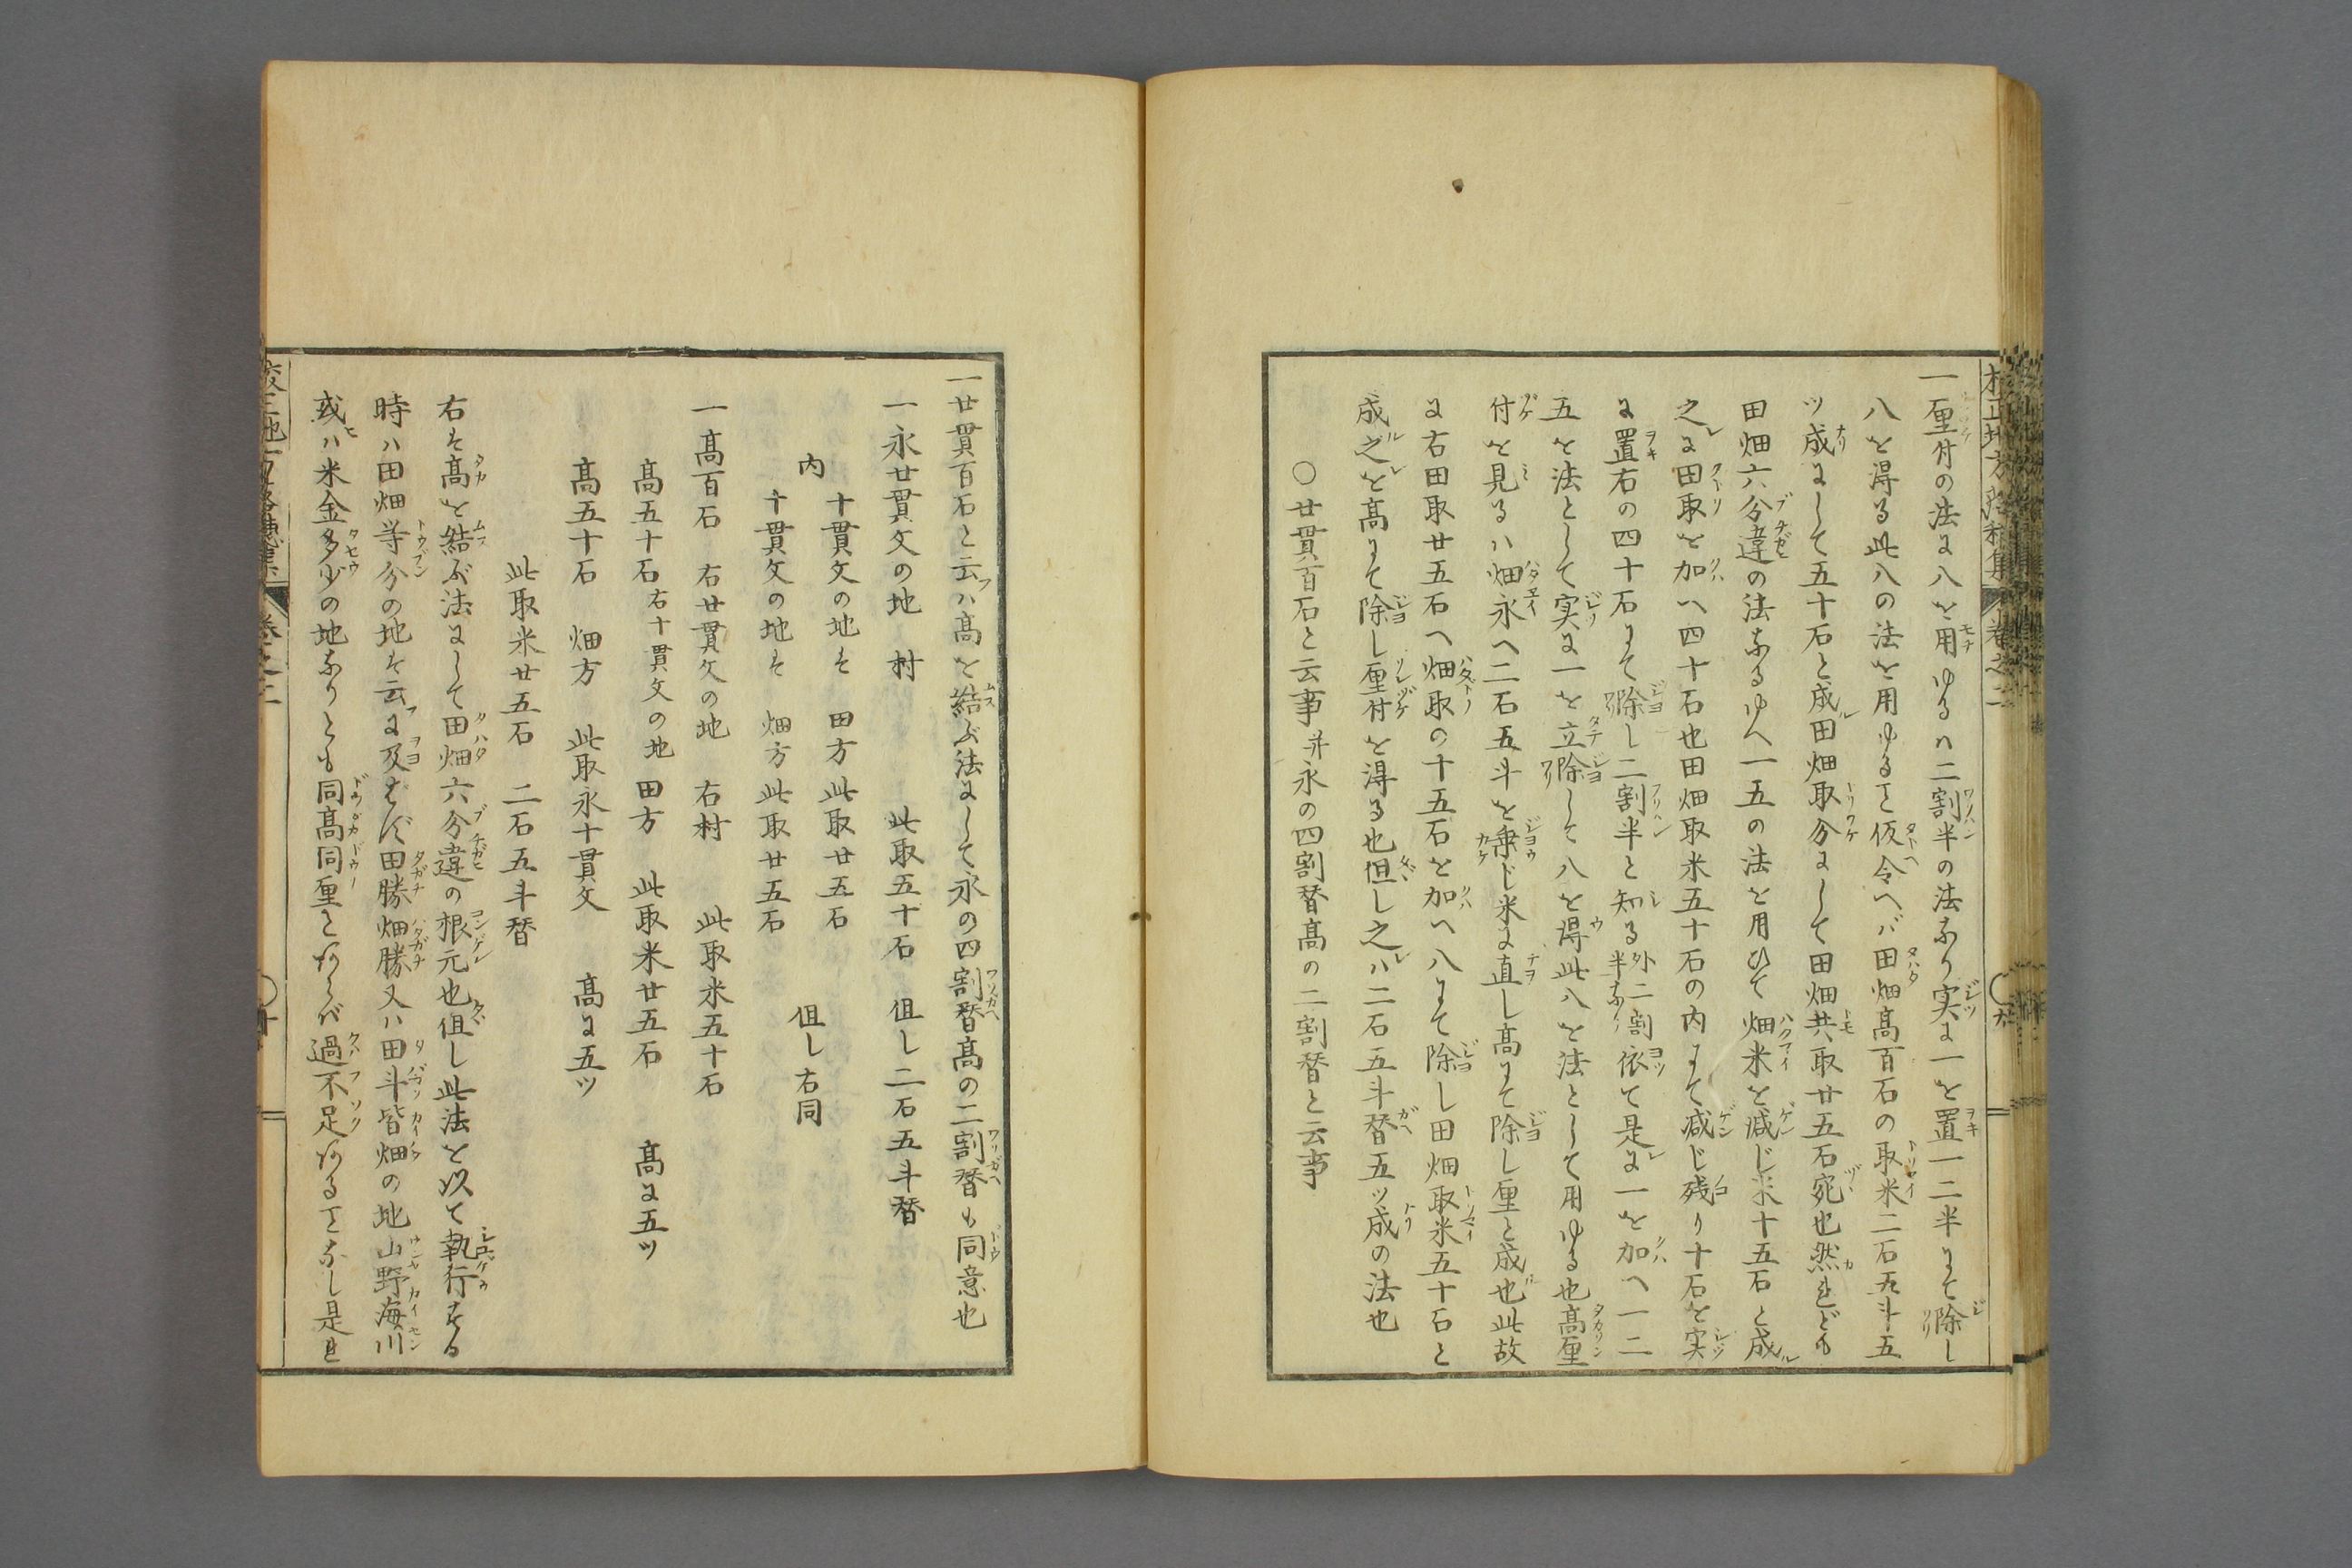 一厘付の法に八を用ゆるハ二割半の法なり実に一を置一二半にて除し
八を得る此八の法を用ゆるヿ仮令へバ田畑髙百石の取米二石五斗五
ツ成にして五十石と成田畑取分にして田畑共取廿五石宛也然れども
田畑六分違の法なるゆへ一五の法を用ひて畑米を減じ米十五石と成
之に田取を加へ四十石也田畑取米五十石の内にて減じ残り十石を実
に置右の四十石にて除し二割半と知る外二割半なり依て是に一を加へ一二
五を法として実に一を立除して八を得此八を法として用ゆる也髙厘
付を見るハ畑永へ二石五斗を乗じ米に直し髙にて除し厘と成也此故
に右田取廿五石へ畑取の十五石を加へ八にて除し田畑取米五十石と
成之を髙にて除し厘付を得る也但し之ハ二石五斗替五ツ成の法也
○廿貫百石と云事并永の四割替髙の二割替と云事
一廿貫百石と云ハ髙を結ぶ法にして永の四割替髙の二割替も同意也
一永廿貫文の地 村 此取五十石 但し二石五斗替
内
十貫文の地そ 田方 此取廿五石
十貫文の地そ 畑方 此取廿五石 但し右同
一髙百石 右廿貫文の地 右村 此取米五十石
髙五十石 右十貫文の地 田方 此取米廿五石 髙に五ツ
髙五十石 畑方 此取永十貫文 髙に五ツ
此取米廿五石 二石五斗替
右そ髙を結ぶ法にして田畑六分違の根元也但し此法を以て執行する
時ハ田畑等分の地そ云に及ばず田勝畑勝又ハ田斗皆畑の地山野海川
或ハ米金多少の地なりとも同髙同厘とあらバ過不足あるヿなし是れ